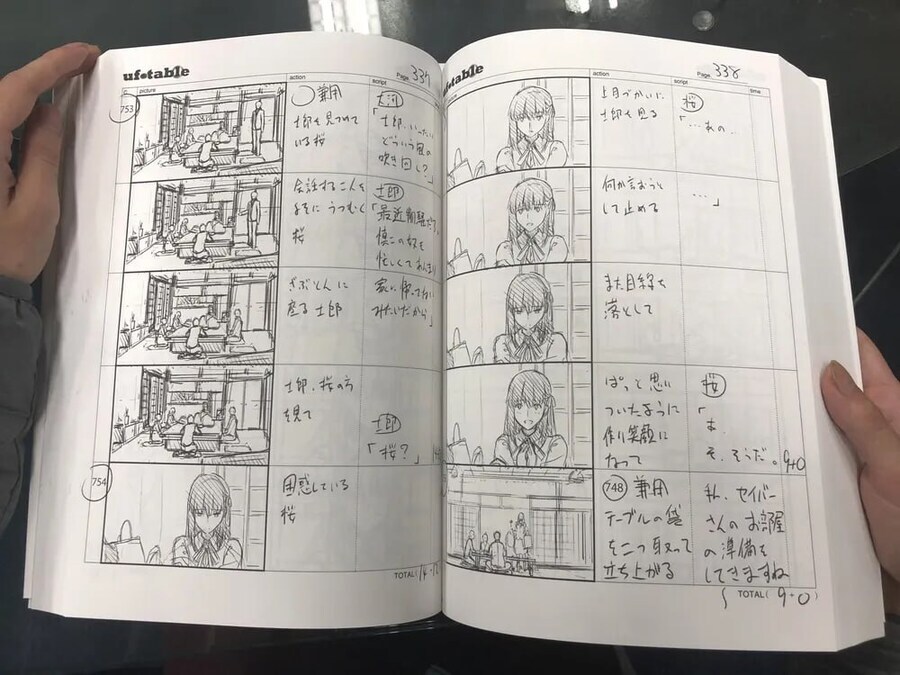 uf•table
Page 337
c picture action script
753
◯ 兼用
士郎を見つめて
いる桜
大河
「士郎、いったい
どういう風の
吹き回し?」
会話する二人を
よそに うつむく
桜
士郎
「最近 物騒だろ。
慎二の奴も
忙しくてあんまり
家に帰ってない
みたいだから」
ざぶとんに
座る士郎
士郎、桜の方
を見て
士郎
「桜?」
754
困惑している
桜
TOTAL(
table
Page 338
action script time
上目づかいに
士郎を見る
桜
「…あの…
何か言おうと
して止める
…」
また目線を
落として
ぱっと思い
ついたように
作り笑顔に
なって
桜
「ま、
そ、そうだ。
9+0
748 兼用
テーブルの袋
を二つ取って
立ち上がる
私、セイバー
さんのお部屋
の準備を
してきますね
TOTAL( 9+0 )